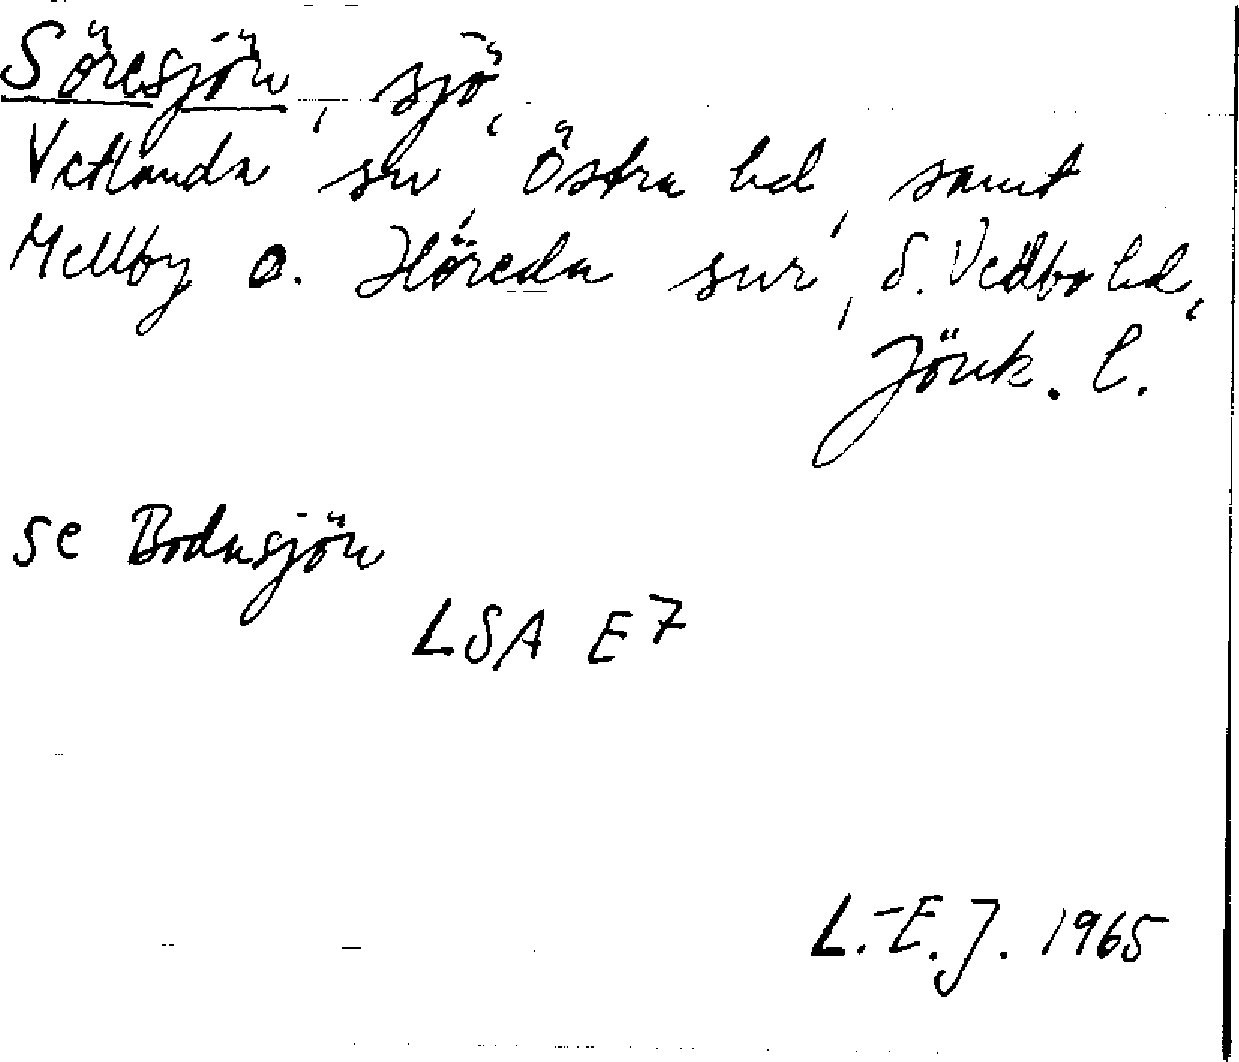 Söresjön, sjö,
Vetlanda sn, Östra hd, samt
Mellby o. Höreda snr, S. Vedbo hd,
Jönk. l.
se Bodasjön
LSA E7
L.-E.J. 1965